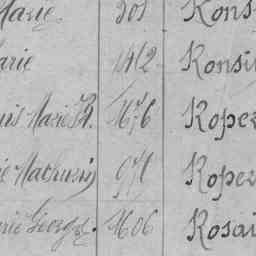 Marie 301 Kons
arie 1412 Konsi
uis Marie Pl. 1676 Kope
ie Mathurin 971 Kope
rie Georges. 1606 Rosai